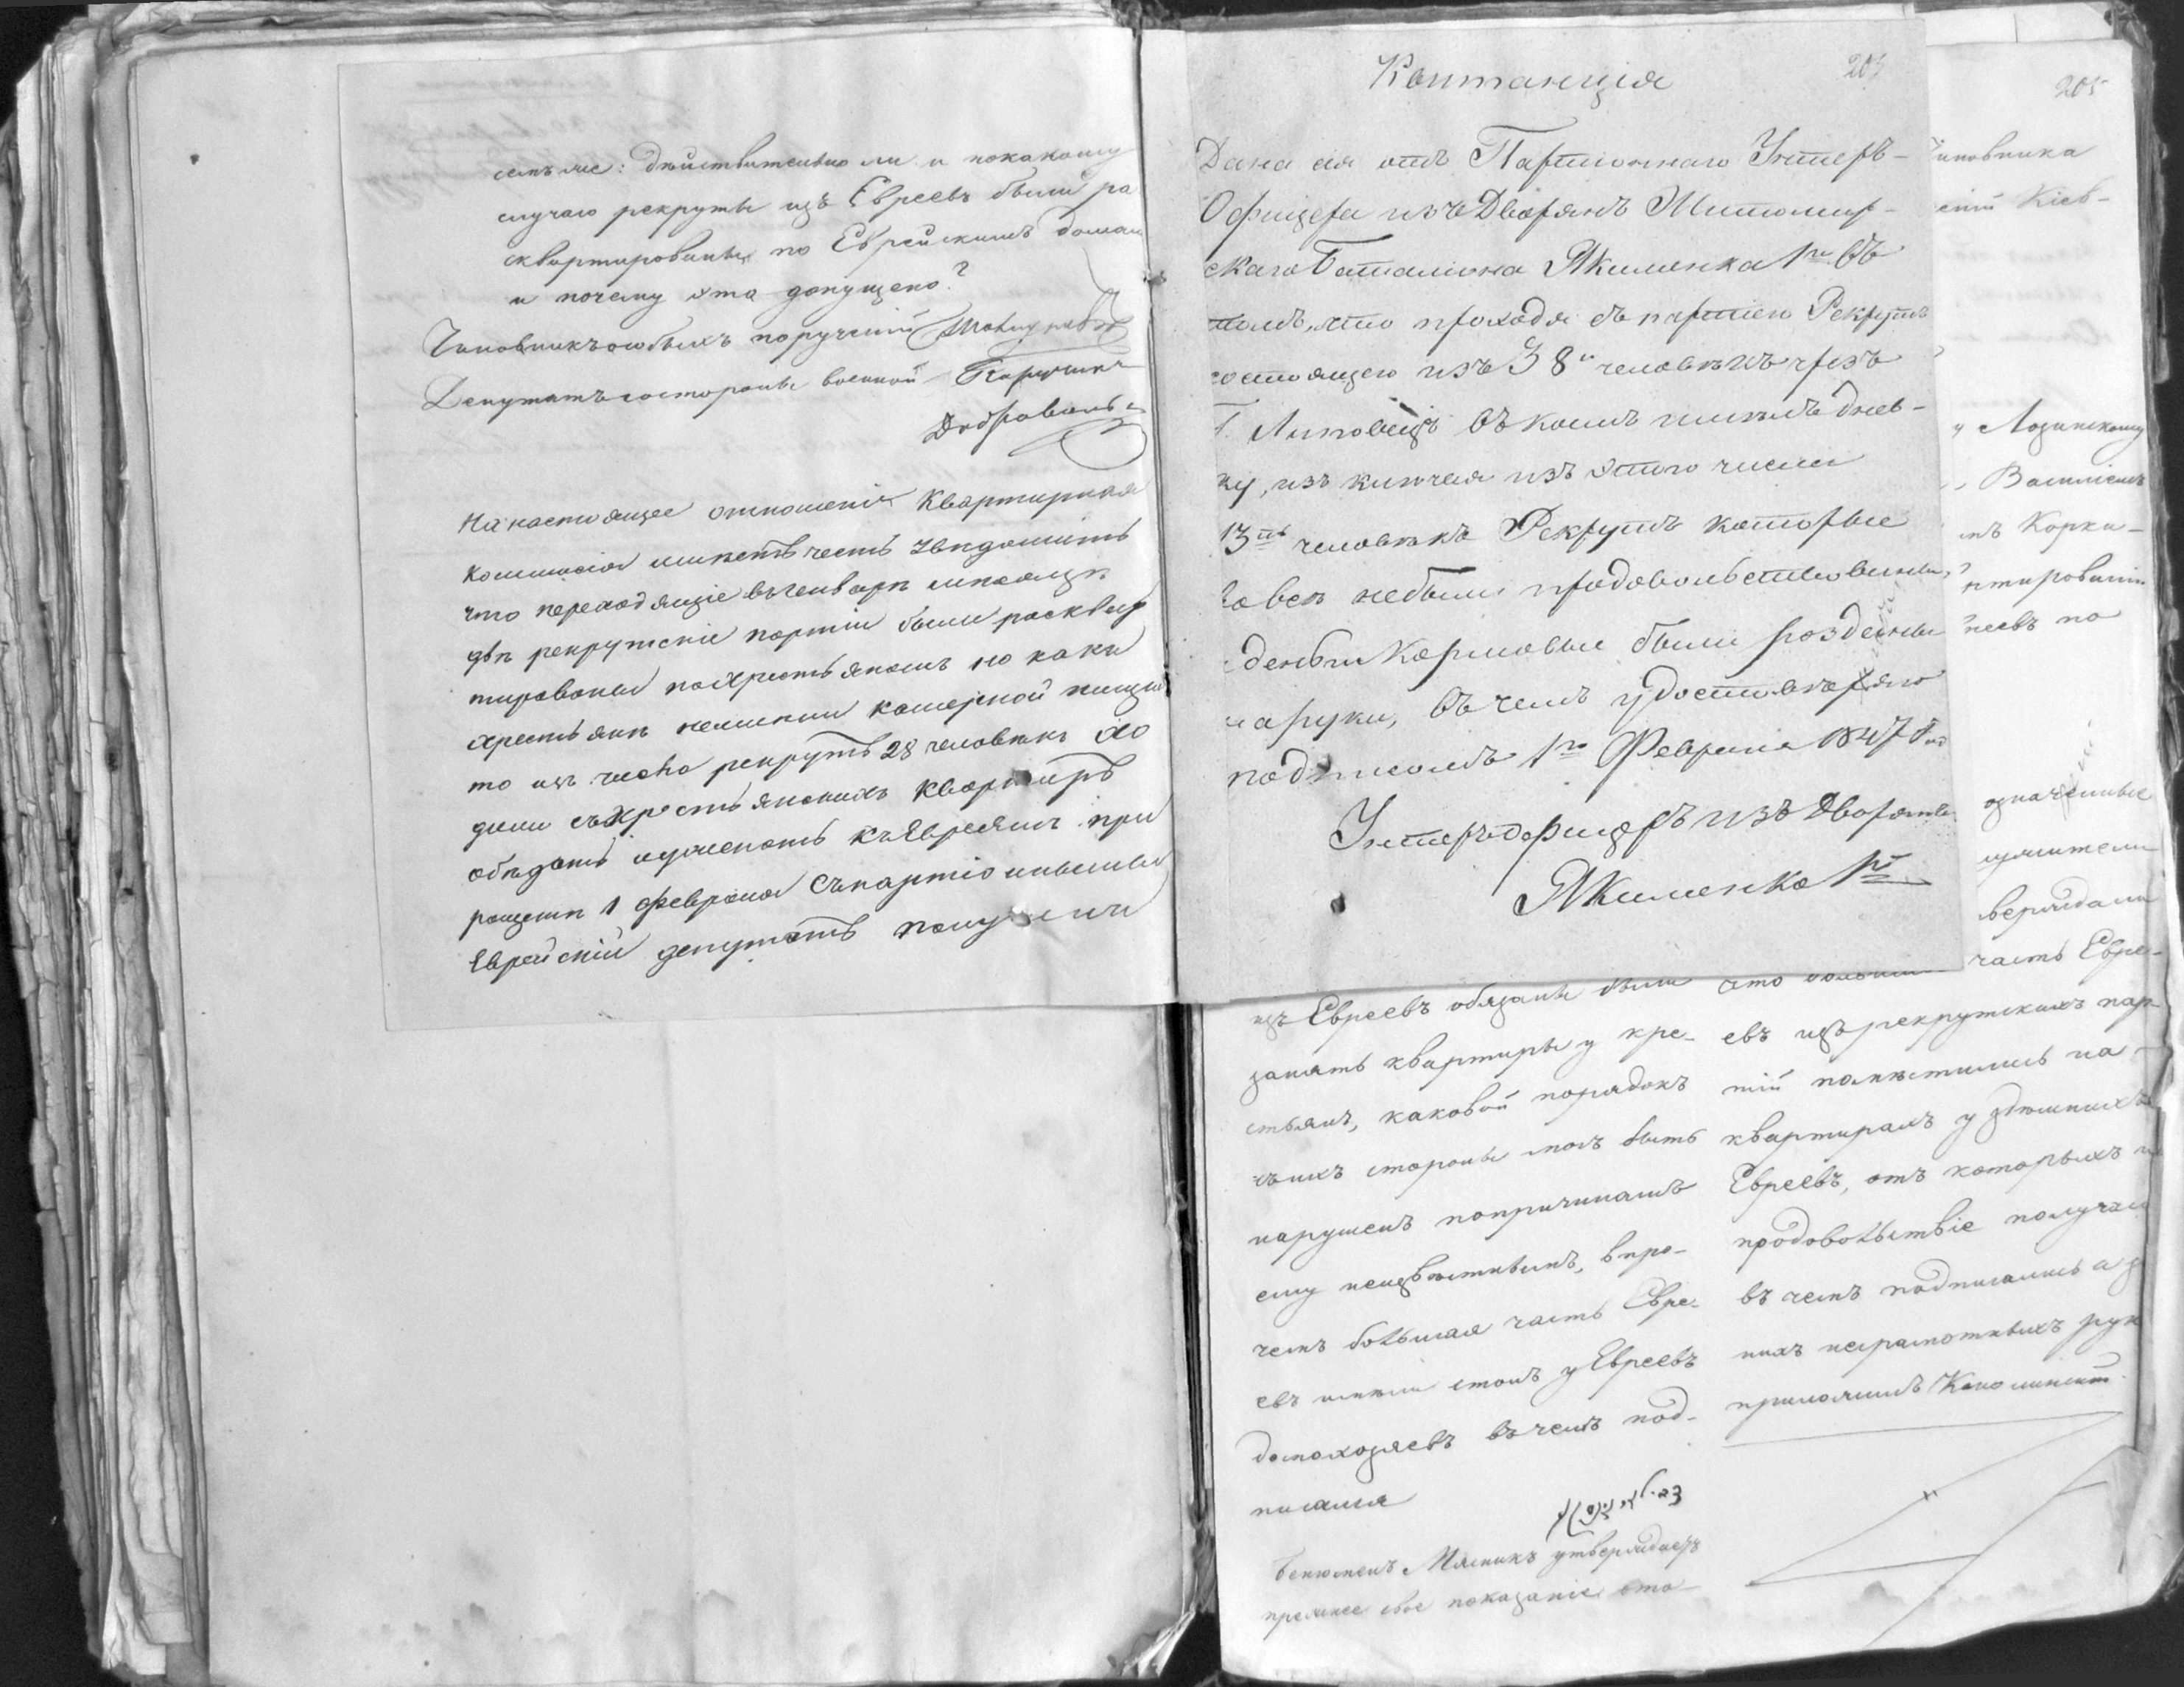 семъ же: действительно ли и по какому
случаю рекруты изъ Евреевъ были ра
сквартированы по Еврейскимъ домам
и почему это допущено?
Чиновникъ особыхъ порученій
Депутатъ со стороны военной Поручикъ
Доброволь
На настоящее отношеніе Квартирная
Коммисія имѣетъ честь увѣдомить
что переходящіе въ генварѣ мѣсяцѣ
двѣ рекрутскіе партіи были расквар
тированы по хрестьянамъ но какъ
хрестьяне неимѣли кошерной пищи
то изъ числа рекрутъ 28 человѣкъ хо
дили съ хрестьянскихъ квартиръ
обѣдать и ужинать къ Евреямъ при
ращетѣ 1 февраля съ партіонными
Еврейскій депутатъ получилъ
Квитанція
203
Дана ся отъ Партіоннаго Унтеръ-
Офицера изъ Дворянъ Житомир-
скаго Баталіона Якименка 1го въ
томъ, что проходя съ партіею Рекрутъ
состоящею изъ 38 человѣкъ чрезъ
Г. Липовецъ въ коемъ имѣлъ днев-
ку, изъ ключая изъ этого числа
13ть человѣкъ Рекрутъ которые
вовсе небыли продовольствованы,
деньги кормовые были розданы
на руки, въ чемъ удостовѣряю
подписомъ 1го Февраля 1847 Год
Унтеръ офицеръ изъ Дворянъ
Якименко 1й
205
Чиновника
Кіев-
у Лозинскому
Корки-
по
означенные
часть Евре-
изъ Евреевъ обязаны были
занять квартиры у кре-
стьянъ, каковой порядокъ
съ ихъ стороны могъ быть
нарушенъ по причинамъ
ему неизвѣстнымъ, впро-
чемъ большая часть Евре-
евъ имѣли столъ у Евреевъ
домохозяевъ въ чемъ под-
писался
Мясникъ утверждаетъ
прежнее свое показаніе
что
евъ изъ рекрутскихъ пар-
тій помѣстились на
квартирахъ у здѣшнихъ
Евреевъ, отъ которыхъ и
продовольствіе получали
въ чемъ подписались а за
нихъ неграмотныхъ рук
приложилъ